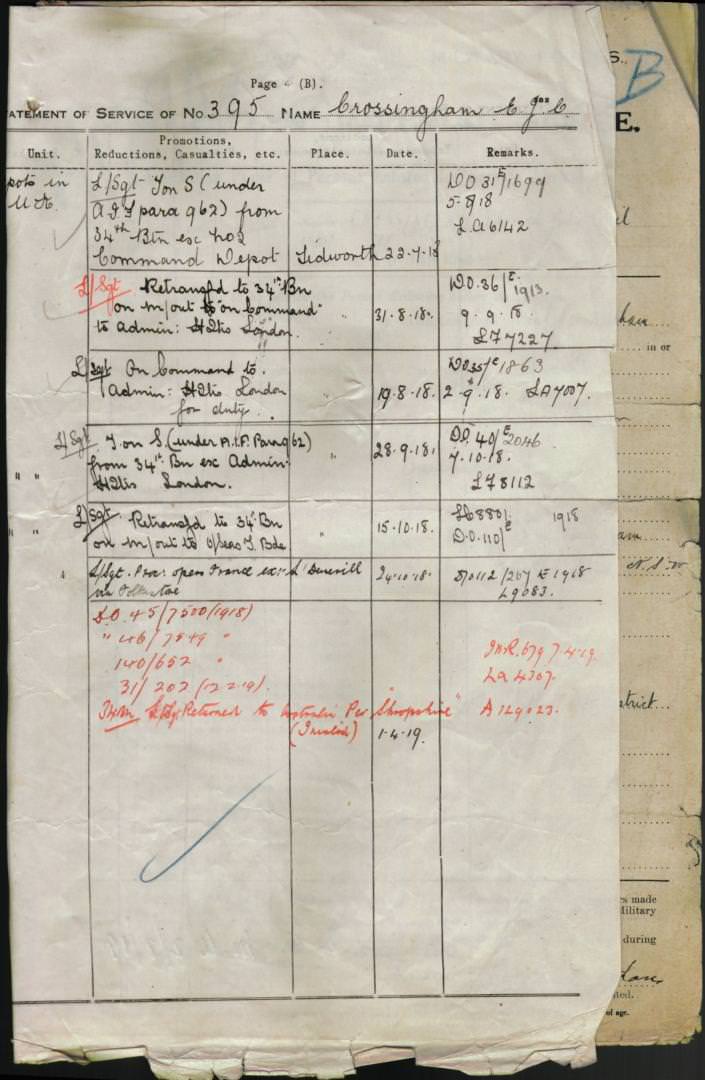 Page 4 (B).
ATEMENT OF SERVICE OF No. 395 NAME Crossingham E. Jas C.
Unit.
Promotions,
Reductions, Casualties, etc.
Place.
Date.
Remarks.
pots in
U.K.
L/Sgt T on S (under
A.I.F para 962) from
34th Btn ex No 2
Command Depot
Tidworth
22-7-18
DO 31E/1699
5-8/18
L.A 6142
L/Sgt Retransfd to 34th Bn
on m/out to "on Command"
to Admin: Hqtrs London.
"
31.8.18.
DO.36/E 1913.
9.9.18.
L77227
L/Sgt On Command to
Admin: Hqtrs London
for duty.
"
19.8.18.
DO 35/E 1863
2.9.18. LA7007.
" "
L/Sgt T. on S. (under A.I.F. Para 962)
from 34th Bn ex Admin.
Hqtrs London.
"
28.9.18.
D.O. 40/E 2046
7.10.18.
L78112
" "
L/Sgt Retransfd to 34th Bn
on m/out to O/seas T. Bde
"
15.10.18.
L68801. 1918
D.O.110/E
L/Sgt. Proc: o'seas France ex
via Folkestone
L' Deverill
24.10.18.
DO112/267 E 1918
L9083.
D.O. 45/7500 (1918)
" 46/7549 "
140/652 "
31/202 (12.2.19).
34 Bn L/Sgt Returned to Australia Per "Shropshire"
(Invalid)
1.4.19.
679 7.4.19.
La 4307.
A 129023.
S.,
B
E.
in or
N.S.W
strict
s made
Military
during
ted.
of age.